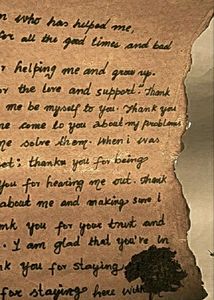 n who has helped me,
for all the good times and bad
r helping me and grow up.
or the love and support. Thank
me be myself to you. Thank you
me come to you about my problems
me solve them. When i was
set; thanku you for being
you for hearing me out. Thank
about me and making sure i
nk you for your trust and
. I am glad that you're in
nk you for staying
for staying here with